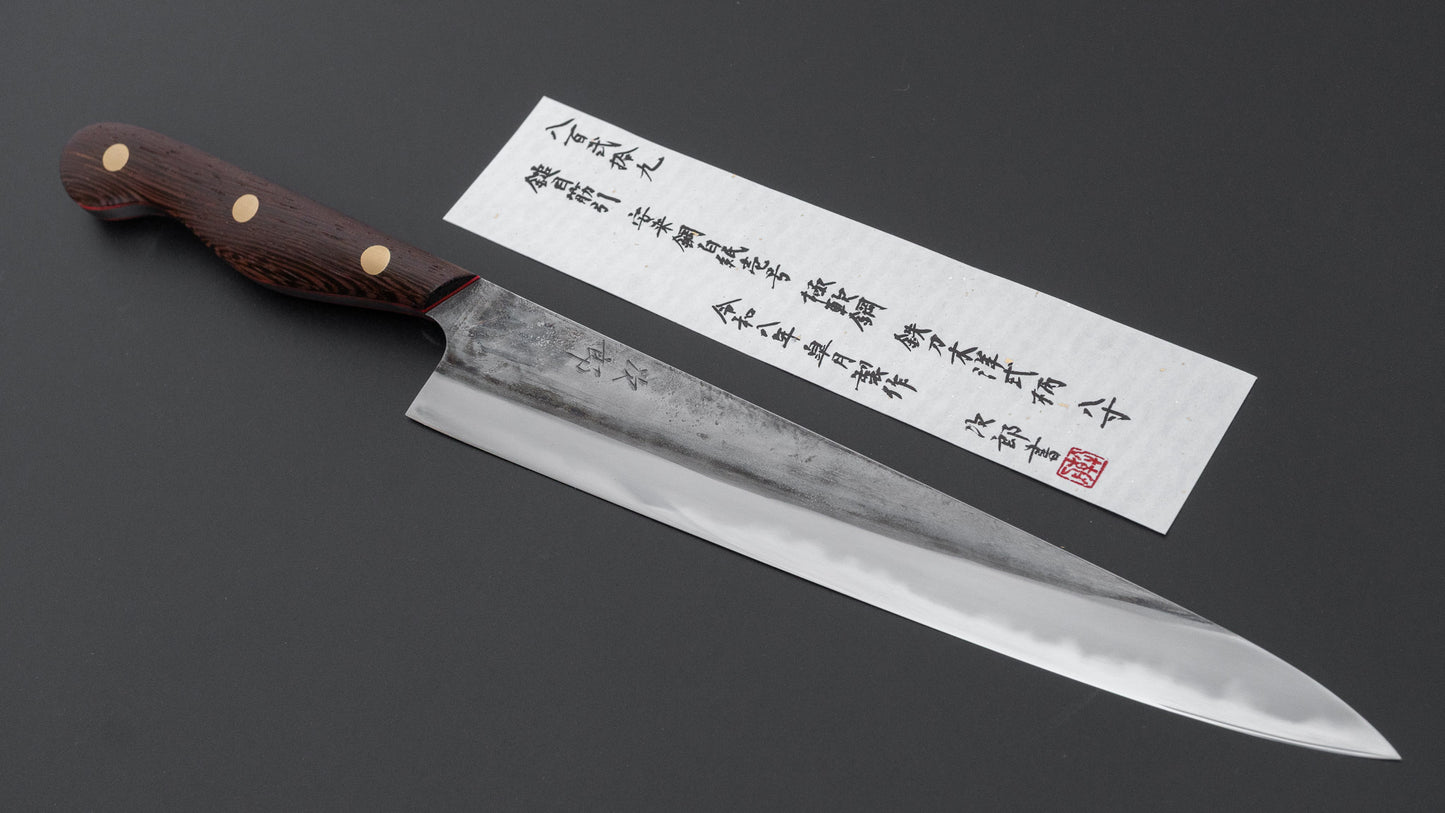 八百弐拾九
鎚目筋引 安来鋼白紙壱号 極軟鋼 鉄刀木洋式柄 八寸
令和八年 皐月製作
次郎書
次郎